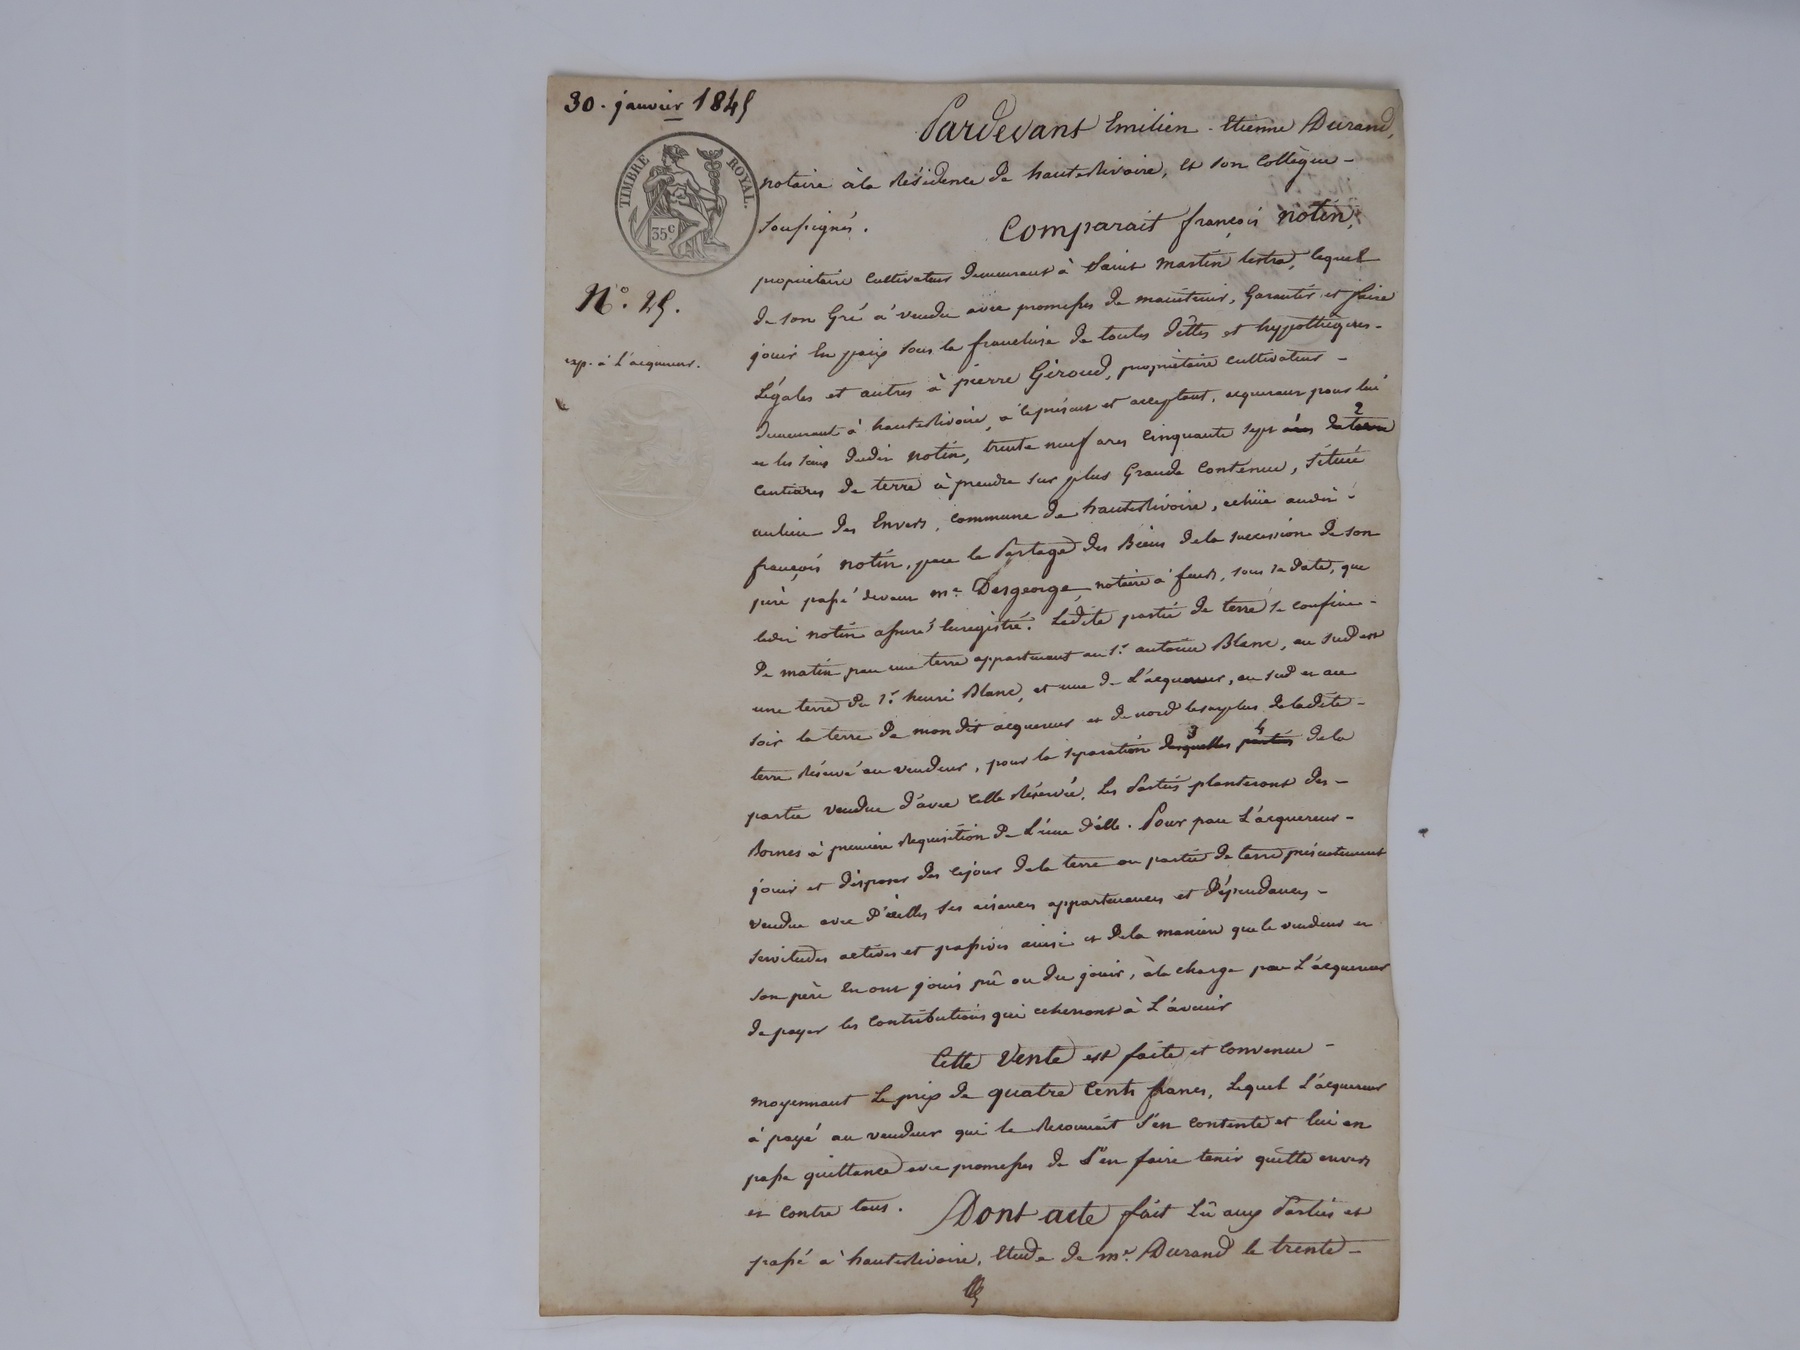 30. janvier 1845
TIMBRE ROYAL.
35c
N° 25.
exp. à L'acquereur.
Pardevant Emilien-Etienne Durand,
notaire à la Résidence de hauterivoire, et son Collègue
soussignés.
Comparait françois notin,
propriétaire Cultivateur demeurant à Saint martin lestra, lequel
de son Gré a vendu avec promesses de maintenir, Garantir et faire
jouir En paix sous la franchise de toutes dettes et hypothèques
Légales et autres à pierre Giroud, propriétaire cultivateur
demeurant à hauterivoire, a ce présent et acceptant, acquereur pour lui
et les siens dudit notin, trente neuf ares Cinquante sept ares de terre 2
Centiares de terre à prendre sur plus Grande Contenue, située
au lieu des Envers, commune de hauterivoire, echüe audit
françois notin, par le Partage des Biens de la succession de son
père passé devant me. Desgeorge, notaire à feurs, sous sa date, que
ledit notin assure Enregistré. Ladite partie de terre se confine
de matin par une terre appartenant au sr. antoine Blanc, au sud est
une terre du sr. henri Blanc, et une de L'acquereur, au sud et au
soir la terre de mondit acquereur et de nord le surplus de ladite
terre Réservé au vendeur, pour la séparation desquelles 3 parties 4 de la
partie vendue d'avec Celle Réservée, Les Parties planteront des
Bornes à première Requisition de L'une d'elle. Pour par L'acquereur
jouir et disposer dès cejour de la terre ou partie de terre présentement
vendue avec d'icelles ses aisances appartenances et dépendances
servitudes actives et passives ainsi et de la manière que le vendeur et
son père En ont joui pû ou du jouir, à la charge par L'acquereur
de payer les Contributions qui echerront à L'avenir
Cette Vente est faite et Convenue
moyennant Le prix de quatre Cents francs, Lequel L'acquereur
à payé au vendeur qui le Reconnait s'en contente et lui en
passe quittance avec promesses de L'en faire tenir quitte envers
et Contre tous. Dont acte fait Lû aux Parties et
passé à hauterivoire, Etude de me. Durand le trente